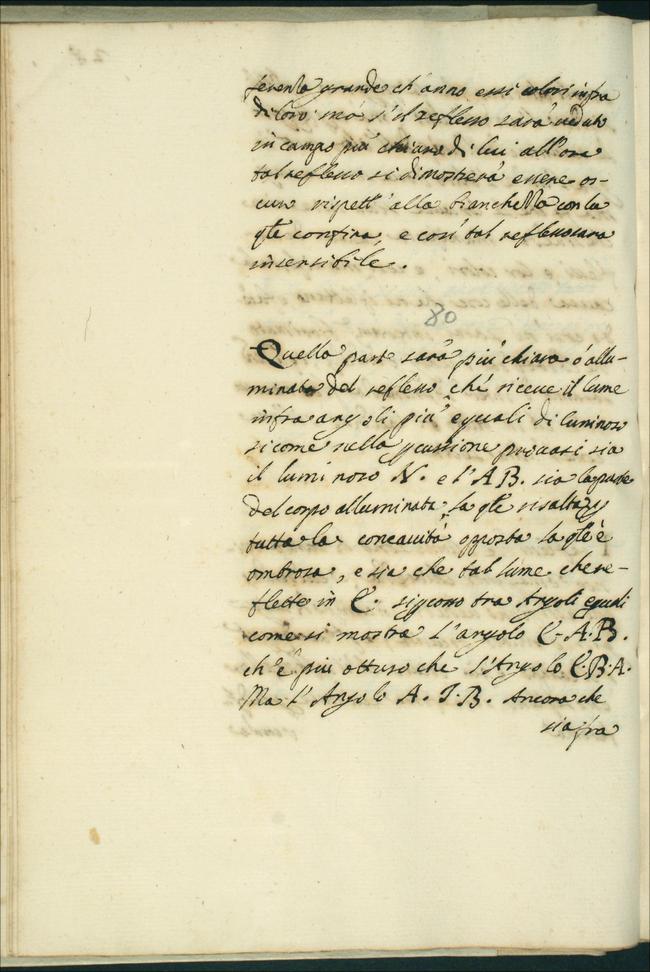 ferenza grande ch'anno essi colori infra
di loro: mà s'il reflesso sarà ueduto
in campo più chiaro di lui all'ora
tal reflesso si dimostrerà essere os-
curo rispett'alla bianchezza con la
qle confina, e così tal reflesso sara
insensibile.
80
Quella parte sarà più chiara ò allu-
minata del reflesso, ché riceue il lume
infra angoli più eguali di luminoso
si come nella pcussione prouasi sia
il luminoso N. e l'AB. sia la parte
del corpo alluminata, la qle risalta p
tutta la concauità opposta la qle è
ombrosa, e sia che tal lume che re-
flette in E.
tra Angoli eguali
come si mostra l'angolo E.A.B.
ch'è più ottuso che l'Angolo E.B.A.
Ma l'Angolo A.I.B. Ancora che
sia fra